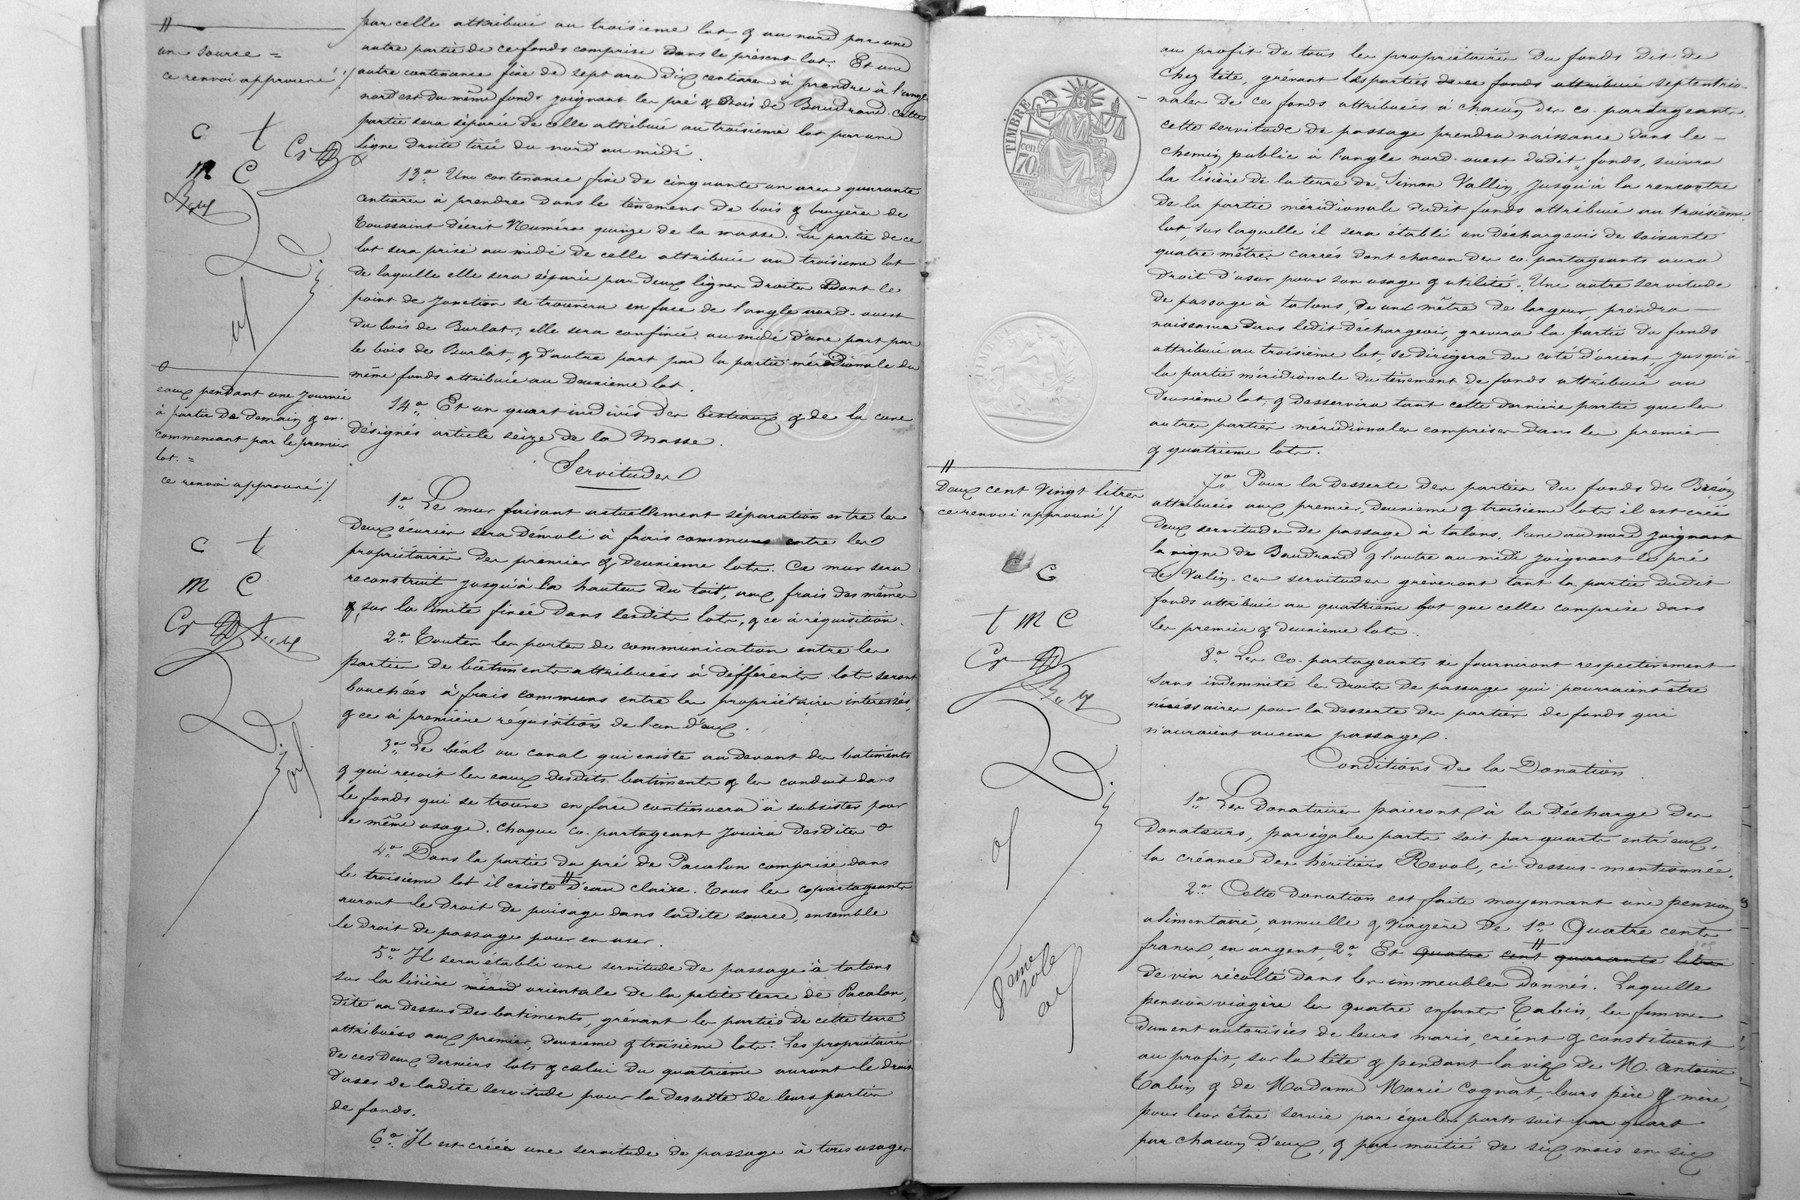 par celle attribuée au troisième lot, & au nord par une
autre partie de ce fonds comprise dans le présent lot. Et une
autre contenance fixe de sept ares dix centiares à prendre à l'angle
nord est du même fonds joignant les pré & bois de Baudrand cette
partie sera séparée de celle attribuée au troisième lot par une
ligne droite tirée du nord au midi.
13° Une contenance fixe de cinquante un ares quarante
centiares à prendre dans le tènement de bois & bruyère de
Toussaint décrit Numéro quinze de la masse. La partie de ce
lot sera prise au midi de celle attribuée au troisième lot
de laquelle elle sera séparée par deux lignes droites dont le
point de jonction se trouvera en face de l'angle nord-ouest
du bois de Burlat; elle sera confinée au midi d'une part par
le bois de Burlat, & d'autre part par la partie méridionale du
même fonds attribuée au deuxième lot.
14° Et un quart indivis des bestiaux & de la cuve
désignés article seize de la Masse.
Servitudes
1° Le mur faisant actuellement séparation entre les
deux écuries sera démoli à frais communs entre les
propriétaires des premier & deuxième lots. Ce mur sera
reconstruit jusqu'à la hauteur du toit, aux frais des mêmes
&, sur la limite fixée dans lesdits lots, & ce à réquisition.
2° Toutes les portes de communication entre les
parties de bâtiments attribuées à différents lots seront
bouchées à frais communs entre les propriétaires intéressés,
& ce à première réquisition de l'un d'eux.
3° Le béal ou canal qui existe au devant des batiments
& qui reçoit les eaux desdits batiments & les conduit dans
le fonds qui se trouve en face continuera à subsister pour
le même usage. Chaque co-partageant jouira desdites o
4° Dans la partie du pré de Pacalon comprise dans
le troisième lot il existe // d'eau claire. Tous les copartageants
auront le droit de puisage dans ladite source, ensemble
le droit de passage pour en user.
5° Il sera établi une servitude de passage à talons
sur la lisière mérid orientale de la petite terre de Pacalon,
dite au dessus des batiments, grévant les parties de cette terre
attribuées aux premier, deuxième & troisième lots. Les propriétaires
de ces deux derniers lots & celui du quatrième auront le droit
d'user de ladite servitude pour la desserte de leurs parties
de fonds.
6° Il est créée une servitude de passage à tous usages
//
un source =
ce renvoi approuvé ./.
C t
M C
o
eaux pendant une journée
à partir de demain & en
commencant par le premier
lot. =
ce renvoi approuvé ./.
C t
M C
au profit de tous les propriétaires du fonds dit de
Chez tête, grévant les parties de ce fonds attribuée septentrio-
nales de ce fonds attribuées à chacun des co-partageants
cette servitude de passage prendra naissance dans le
chemin public à l'angle nord-ouest dudit fonds, suivra
la lisière de la terre de Simon Vallin, jusqu'à la rencontre
de la partie méridionale dudit fonds attribuée au troisième
lot, sur laquelle il sera établi un déchargeoir de soixante
quatre mètres carrés dont chacun des co-partageants aura
droit d'user pour son usage & utilité. Une autre servitude
de passage à talons, de un mètre de largeur, prendra
naissance dans ledit déchargeoir, grevera la partie du fonds
attribuée au troisième lot, se dirigera du coté d'orient, jusqu'à
la partie méridionale du tènement de fonds attribuée au
deuxième lot, & desservira tant cette dernière partie que les
autres parties méridionales comprises dans les premier
& quatrième lots.
7° Pour la desserte des parties du fonds de
attribuées aux premier, deuxième & troisième lots il est créé
deux servitudes de passage à talons, l'une au nord joignant
la vigne de Baudrand & l'autre au midi joignant le pré
de Valin. ces servitudes grèveront tant la partie dudit
fonds attribuée au quatrième lot que celle comprise dans
les premier & deuxième lots.
8° Les co-partageants se fourniront respectivement
sans indemnité le droits de passage qui pourraient être
nécessaires pour la desserte des parties de fonds qui
n'auraient aucun passage.
Conditions de la Donation
1° Les Donataires paieront à la décharge des
Donateurs, par égales parts soit par quarts entr'eux,
la créance des héritiers Revol, ci-dessus-mentionnée.
2° Cette donation est faite moyennant une pension
alimentaire, annuelle & viagère de 1° Quatre cents
francs, en argent, 2° Et quatre cent quarante litres //
de vin récolté dans les immeubles donnés. Laquelle
pension viagère les quatre enfants Cabin, les femmes
dument autorisées de leurs maris, créent & constituent
au profit, sur la tête & pendant la vie de M. Antoine
Cabin & de Madame Marie Cognat, leurs père & mère,
pour leur être servie par égales parts soit par quart
par chacun d'eux, & par moitié de six mois en six
TIMBRE
1 cen
70
//
Deux cent vingt litres
ce renvoi approuvé ./.
C
t M C
8ème
role